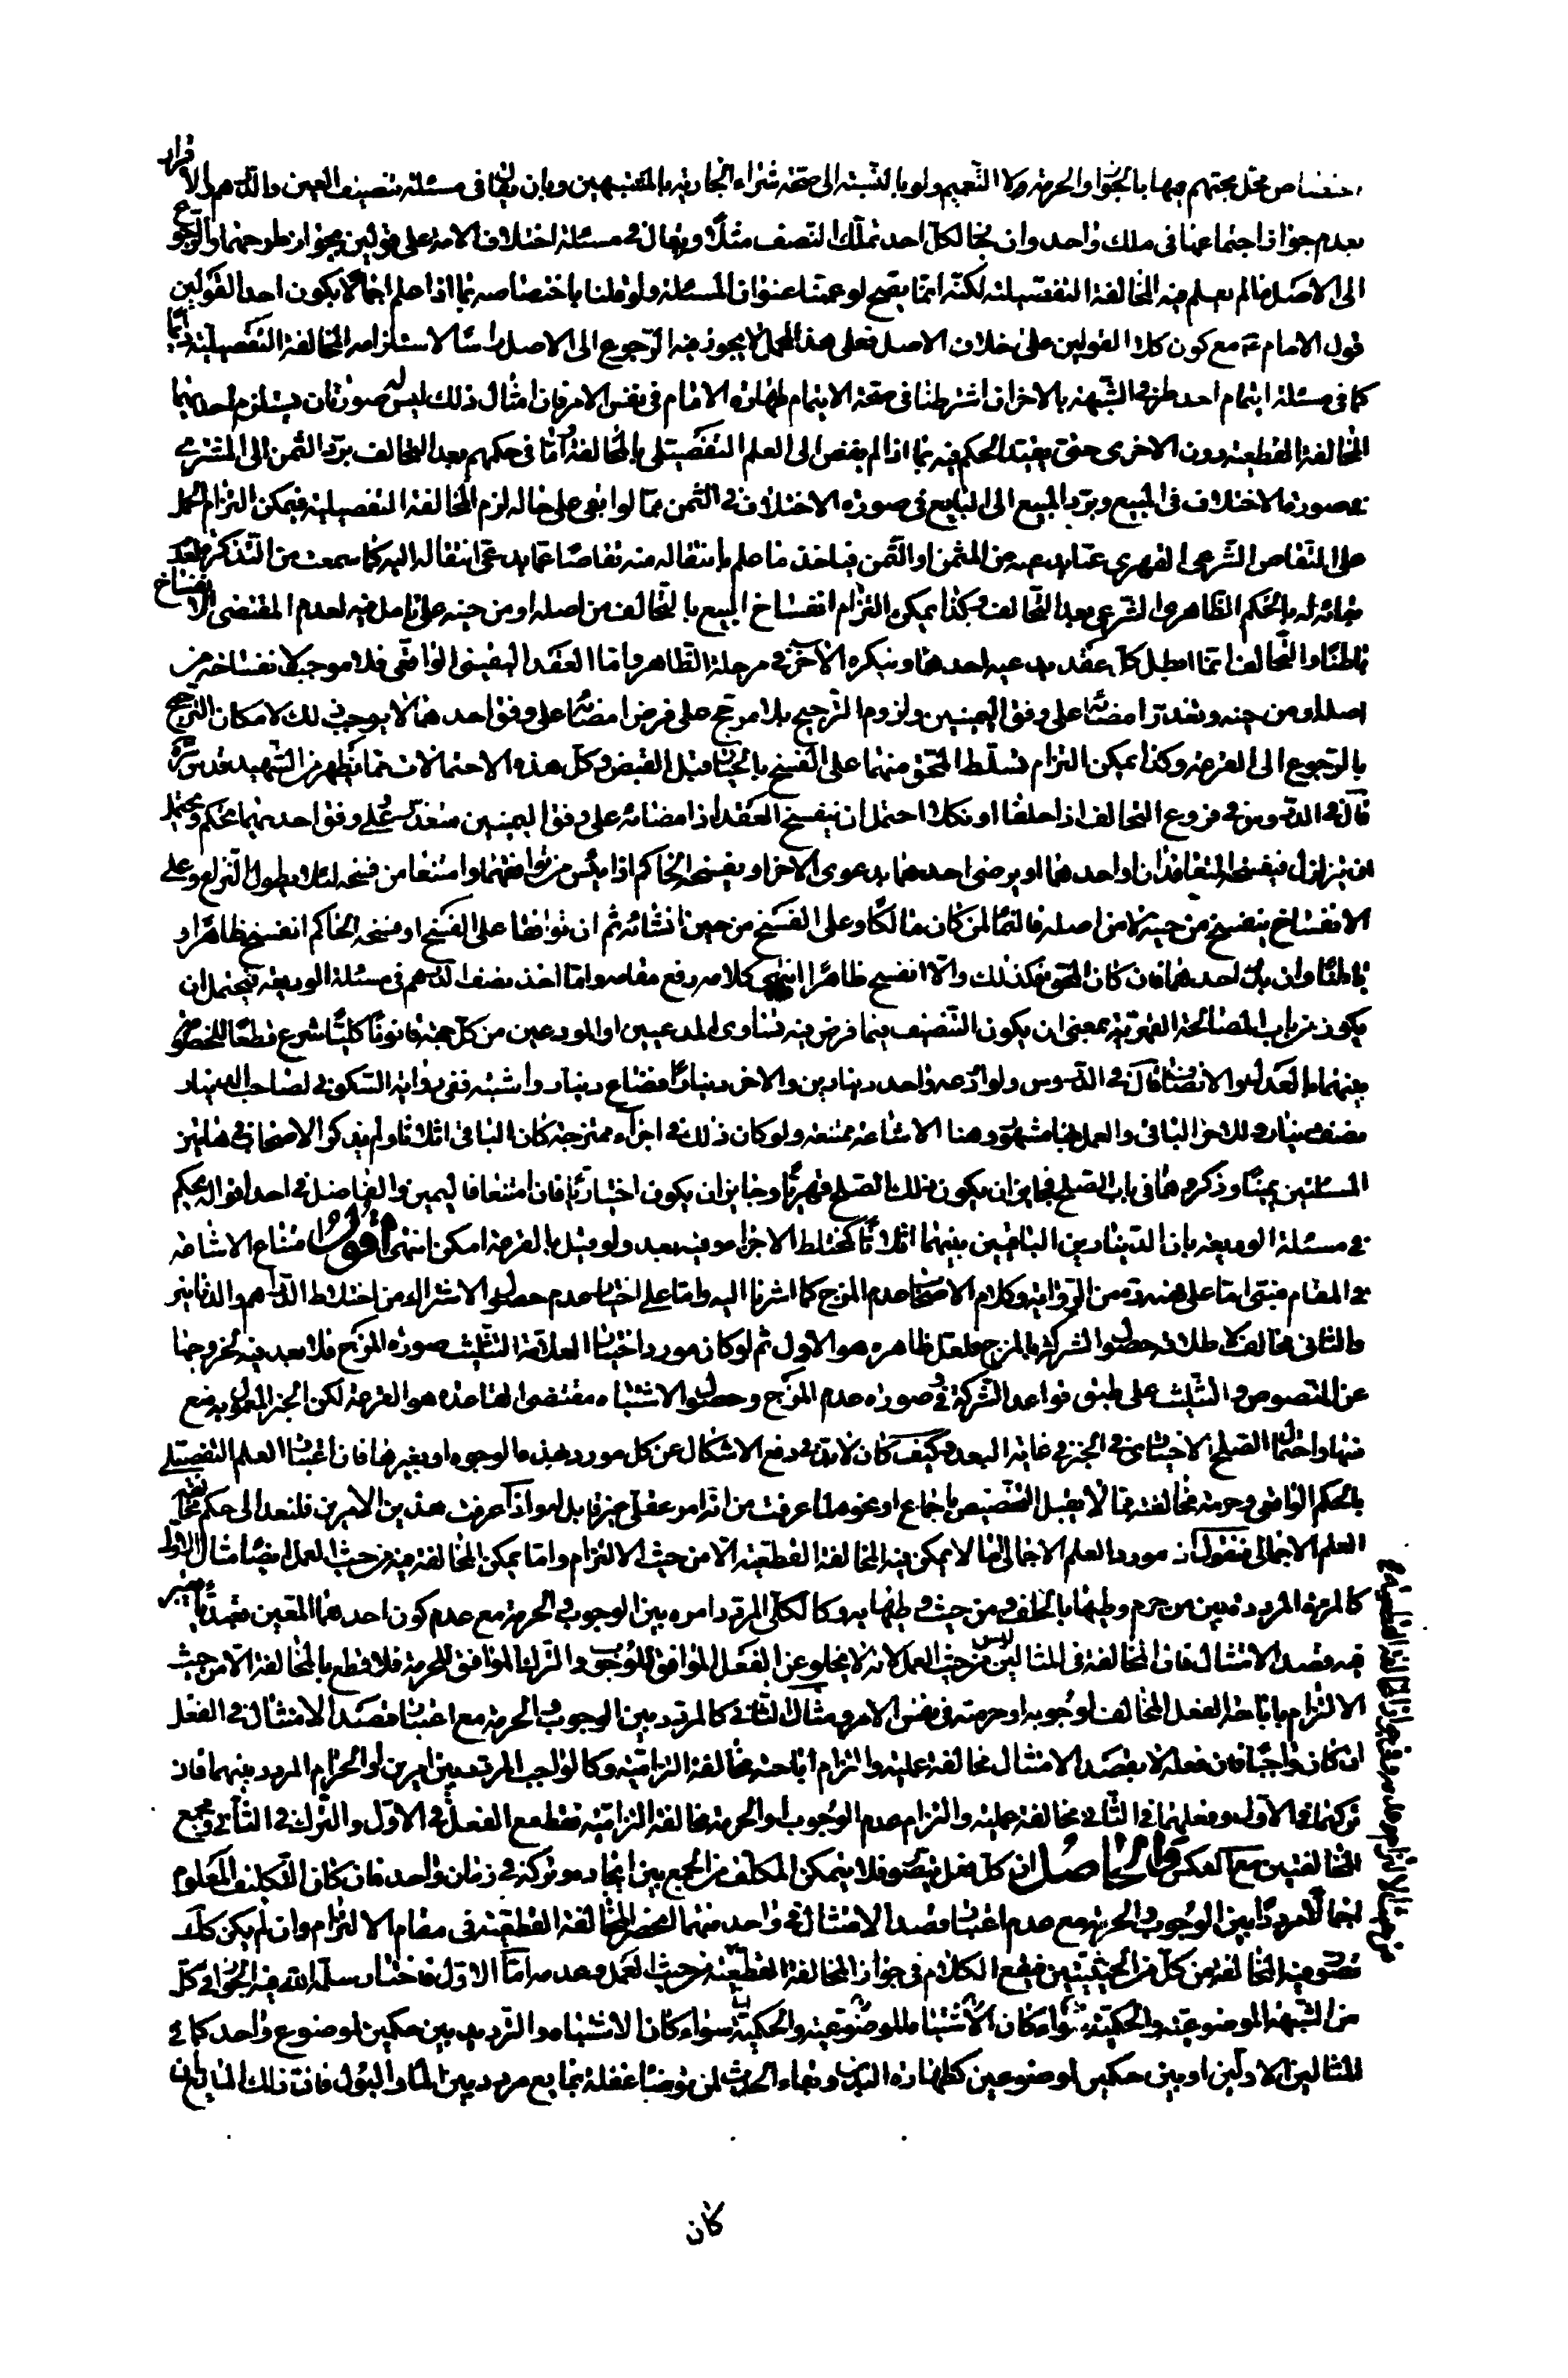 اختصاص محل مجتهم فيها بالجواز والحرمة ولا التعميم ولو بالنسبة الى صحة شراء الجارية بالمشتبهين وبان يقال في مسئلة تنصيف العين والدرهم او الاقرار
بعدم جواز اجتماعهما في ملك واحد وان جاز لكل احد تملك النصف مثلا ويقال في مسئلة اختلاف الامة على قولين بجواز طرحهما والرجوع
الى الاصل ما لم يعلم فيه المخالفة التفصيلية لكنه انما يصح لو عممنا عنوان المسئلة ولو قلنا باختصاصه بما اذا علم اجمالا بكون احد القولين
قول الامام ع مع كون كلا القولين على خلاف الاصل فعلى هذا المجمل لا يجوز فيه الرجوع الى الاصل راسا لاستلزامه المخالفة التفصيلية دائما
كما في مسئلة ايتمام احد طرفي الشبهة بالاخر ان اشترطنا في صحة الايتمام طهارة الامام في نفس الامر فان امثال ذلك ليس له صورتان يستلزم احديهما
المخالفة القطعية دون الاخرى حتى يقيد الحكم فيه بما اذا لم يفض الى العلم التفصيلي بالمخالفة واما في حكمهم بعد التحالف برد الثمن الى المشتري
في صورة الاختلاف في المبيع وبرد المبيع الى البايع في صورة الاختلاف في الثمن مما لو ابقي على حاله لزم المخالفة التفصيلية فيمكن التزام الحمل
على التقاص الشرعي القهري عما يدعيه من المثمن او الثمن فياخذ ما علم بانتقاله منه تقاصا عما يدعي انتقاله اليه كما سمعت من التذكرة
بقائه له بالحكم الظاهري الشرعي بعد التحالف وكذا يمكن التزام انفساخ البيع بالتحالف من اصله او من حينه على تامل فيه لعدم المقتضي للانفساخ
باطنا والتحالف انما ابطل كل عقد يدعيه احدهما وينكره الاخر في مرحلة الظاهر واما العقد اليقيني الواقعي فلا موجب لانفساخه من
اصله او من حينه وتعذر امضائه على وفق اليمينين ولزوم الترجيح بلا مرجح على فرض امضائه على وفق احدهما لا يوجب ذلك لامكان الترجيح
بالرجوع الى القرعة وكذا يمكن التزام تسلط المحق منهما على الفسخ بالخيار قبل القبض وكل هذه الاحتمالات مما يظهر من الشهيد قدس سره
قال في الدروس في فروع التحالف اذا حلفا او نكلا احتمل ان ينفسخ العقد اذ امضائه على وفق اليمينين متعذر وعلى وفق احديهما تحكم ويحتمل
ان يتزلزل فيفسخه المتعاقدان او احدهما او يرضى احدهما بدعوى الاخر او يفسخه الحاكم اذا يئس من توافقهما وامتنعا من فسخه لئلا يطول النزاع وعلى
الانفساخ ينفسخ من حينه لا من اصله فالنماء لمن كان مالكا وعلى الفسخ من حين انشائه ثم ان توافقا على الفسخ او فسخه الحاكم انفسخ ظاهرا و
باطنا وان بدر احدهما فان كان المحق فكذلك والا انفسخ ظاهرا انتهى كلامه رفع مقامه واما اخذ نصف الدرهم في مسئلة الوديعة فيحتمل ان
يكون من باب المصالحة القهرية بمعنى ان يكون التنصيف فيما فرض فيه تساوي المدعيين او المودعين من كل جهة قانونا كليا شرع قطعا للخصومة
بينهما بالعدل والانصاف قال في الدروس ولو اودعه واحد دينارين والاخر دينارا فضاع دينار واشتبه ففي رواية السكوني لصاحب الدينار
نصف دينار وللاخر الباقي والعمل بها مشهور وهنا الاشاعة ممتنعة ولو كان ذلك في اجزاء ممتزجة كان الباقي اثلاثا ولم يذكر الاصحاب في هاتين
المسئلتين يمينا وذكروهما في باب الصلح فجايز ان يكون ذلك الصلح قهريا وجايز ان يكون اختياريا فان امتنعا فاليمين والفاضل في احد اقواله يحكم
في مسئلة الوديعة بان الدينارين الباقيين بينهما اثلاثا كمختلط الاجزاء وفيه بعد ولو قيل بالقرعة امكن انتهى اقول امتناع الاشاعة
في المقام مبتني اما على فهمه من الرواية وكلام الاصحاب عدم المزج كما اشرنا اليه واما على اختيار عدم حصول الاشتراك من اختلاط الدراهم والدنانير
والثاني مخالف لاطلاقهم حصول الشركة بالمزج فلعل ظاهره هو الاول ثم لو كان مورد اختيار العلامة التثليث صورة المزج فلا بعد فيه لخروجها
عن المنصوص والتثليث على طبق قواعد الشركة وفي صورة عدم المزج وحصول الاشتباه مقتضى القاعدة هو القرعة لكن الخبر المعمول به منع
منها واحتمال الصلح الاختياري في الخبر في غاية البعد وكيف كان لا بد في دفع الاشكال عن كل مورد بهذه الوجوه او بغيرها فان اعتبار العلم التفصيلي
بالحكم الواقعي وحرمة مخالفته مما لا يقبل التخصيص باجماع او نحوه لما عرفت من انه امر عقلي جزما بل هو اذا عرفت هذين الامرين فلنعد الى حكم مخالفة
العلم الاجمالي فنقول ان مورد العلم الاجمالي اما لا يمكن فيه المخالفة القطعية الا من حيث الالتزام واما يمكن المخالفة فيه من حيث العمل ايضا مثال الاول
كالمرئة المرددة بين من حرم وطيها بالحلف ومن حيث وطيها به وكالكلي المردد امره بين الوجوب والحرمة مع عدم كون احدهما المعين تعبديا يعتبر
فيه قصد الامتثال فان المخالفة في المثالين ليس من حيث العمل لانه لا يخلو عن الفعل الموافق للوجوب والترك الموافق للحرمة فلا قطع بالمخالفة الا من حيث
الالتزام باباحة الفعل المخالف لوجوبه او حرمته في نفس الامر ومثال الثاني كالمردد بين الوجوب والحرمة مع اعتبار قصد الامتثال في الفعل
ان كان واجبا فان فعله لا بقصد الامتثال مخالفة عملية والتزام اباحته مخالفة التزامية وكالواجب المردد بين امرين او الحرام المردد بينهما فان
تركهما في الاول وفعلهما في الثاني مخالفة عملية والتزام عدم الوجوب او الحرمة مخالفة التزامية فقط مع الفعل في الاول والترك في الثاني ومجمع
المخالفتين مع العكس والحاصل ان كل فعل يتصور فلا يتمكن المكلف من الجمع بين ايجاده وتركه في زمان واحد فان كان التكليف المعلوم
اجمالا مرددا بين الوجوب والحرمة مع عدم اعتبار قصد الامتثال في واحد منهما انحصر المخالفة القطعية في مقام الالتزام وان لم يكن كذلك
تصور فيه المخالفة من كل من الحيثيتين فيقع الكلام في جواز المخالفة القطعية من حيث العمل وعدمه اما الاول فاختار سلمه الله فيه الجواز في كل
من الشبهة الموضوعية والحكمية سواء كان الاشتباه للموضوعية والحكمية سواء كان الاشتباه والترديد بين حكمين لموضوع واحد كما في
المثالين الاولين او بين حكمين لموضوعين كطهارة البدن وبقاء الحدث لمن توضأ غفلة بمايع مردد بين الماء والبول فان ذلك المايع ان
كان